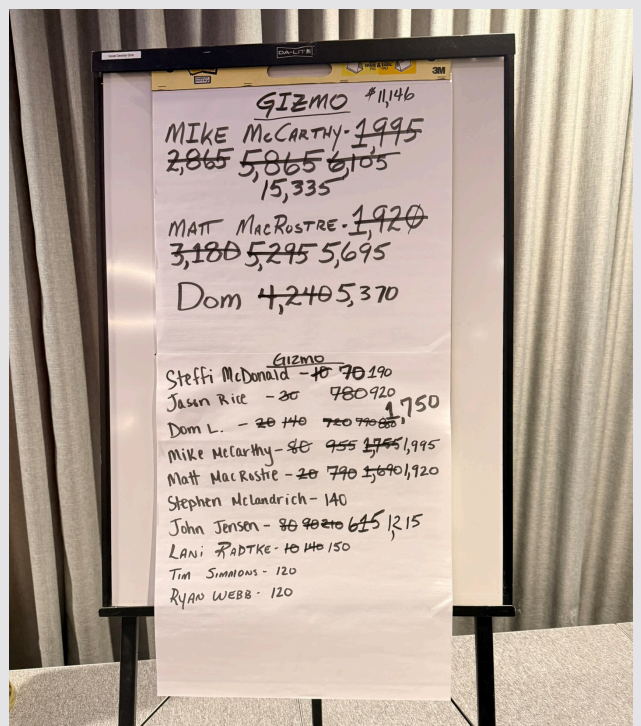 DA-LITE
3M
GIZMO $11,146
MIKE McCARTHY - 1,995
2,865 5,865 6,105
15,335
MATT MACROSTRE - 1,920
3,180 5,295 5,695
Dom 4,240 5,370
Gizmo
Steffi McDonald - 10 70 190
Jason Rice - 30 780 920
Dom L. - 20 140 720 790 1,750
Mike McCarthy - 80 955 1,755 1,995
Matt MacRostre - 20 790 1,690 1,920
Stephen McLandrich - 140
John Jensen - 80 90 210 615 1,215
LANI RADTKE - 10 140 150
TIM SIMMONS - 120
RYAN WEBB - 120